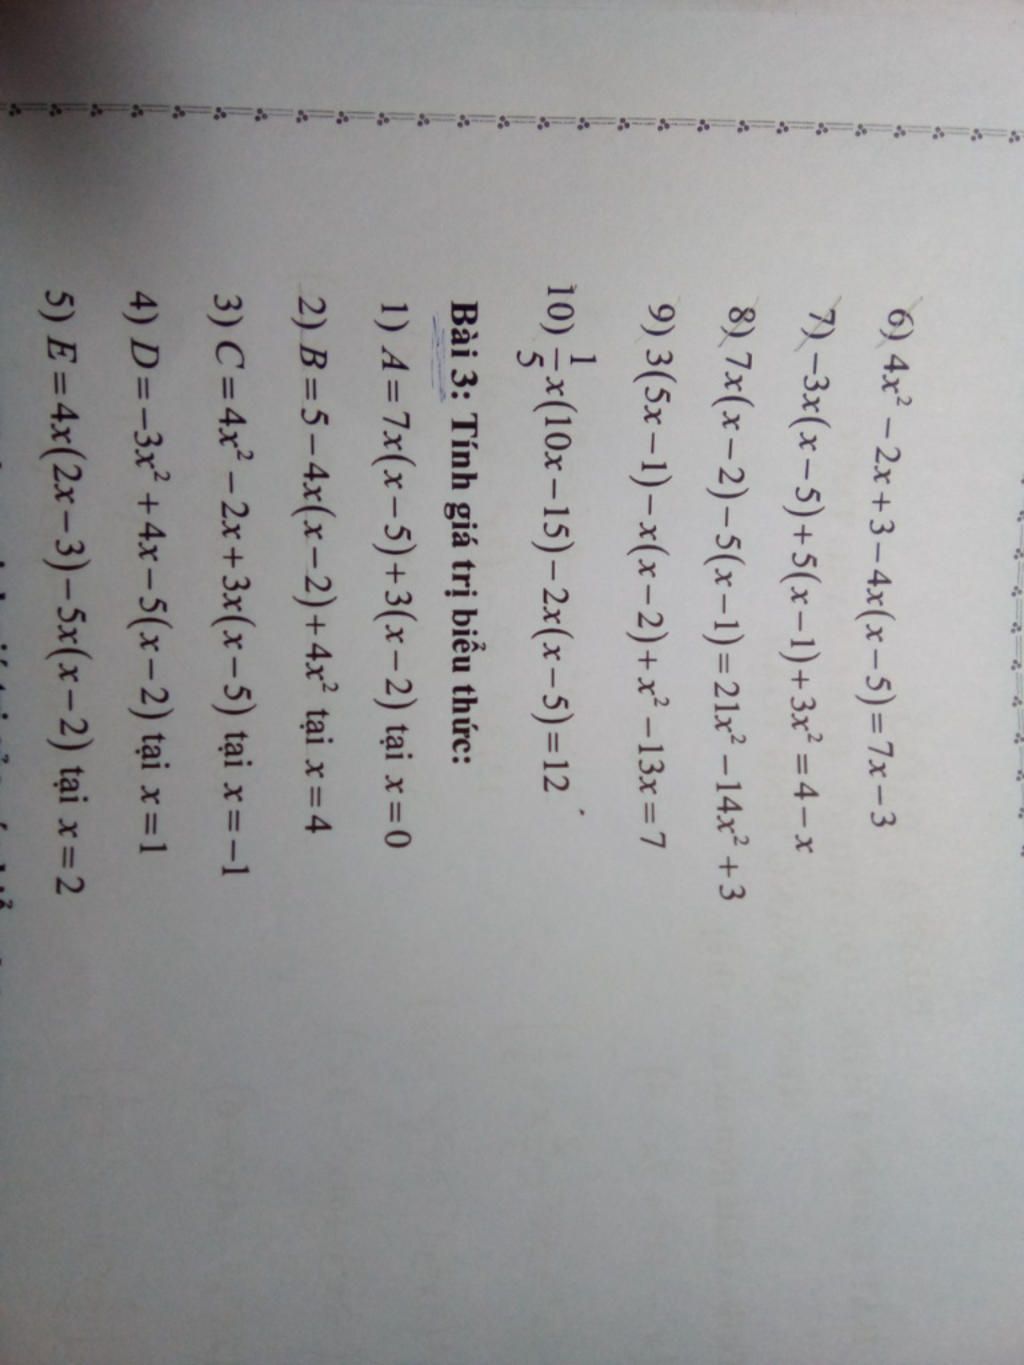 6) 4x² − 2x + 3 − 4x(x − 5) = 7x − 3
7) −3x(x − 5) + 5(x − 1) + 3x² = 4 − x
8) 7x(x − 2) − 5(x − 1) = 21x² − 14x² + 3
9) 3(5x − 1) − x(x − 2) + x² − 13x = 7
10) 1/5 x(10x − 15) − 2x(x − 5) = 12
Bài 3: Tính giá trị biểu thức:
1) A = 7x(x − 5) + 3(x − 2) tại x = 0
2) B = 5 − 4x(x − 2) + 4x² tại x = 4
3) C = 4x² − 2x + 3x(x − 5) tại x = −1
4) D = −3x² + 4x − 5(x − 2) tại x = 1
5) E = 4x(2x − 3) − 5x(x − 2) tại x = 2